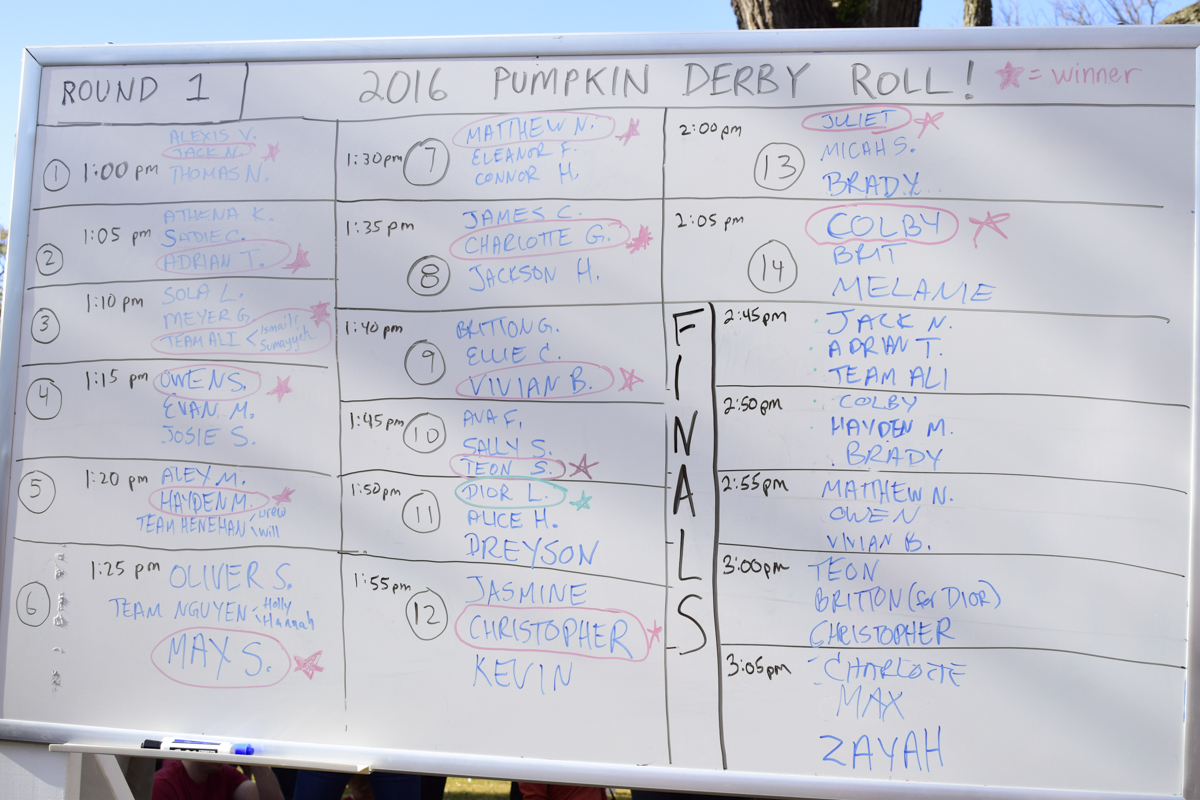 ROUND 1
2016 PUMPKIN DERBY ROLL! ★ = winner
1 1:00 pm
ALEXIS V.
JACK N. ★
THOMAS N.
2 1:05 pm
ATHENA K.
SADIE C.
ADRIAN T. ★
3 1:10 pm
SOLA L.
MEYER G.
TEAM ALI < Ismail Sumayyah ★
4 1:15 pm
OWEN S. ★
EVAN M.
JOSIE S.
5 1:20 pm
ALEX M.
HAYDEN M. ★
TEAM HENEHAN < Drew Will
6 1:25 pm
OLIVER S.
TEAM NGUYEN < Holly Hannah
MAX S. ★
7 1:30 pm
MATTHEW N. ★
ELEANOR F.
CONNOR H.
8 1:35 pm
JAMES C.
CHARLOTTE G. ★
JACKSON H.
9 1:40 pm
BRITTON G.
ELLIE C.
VIVIAN B. ★
10 1:45 pm
AVA F.
SALLY S.
TEON S. ★
11 1:50 pm
DIOR L. ★
ALICE H.
DREYSON
12 1:55 pm
JASMINE
CHRISTOPHER ★
KEVIN
13 2:00 pm
JULIET ★
MICAH S.
BRADY
14 2:05 pm
COLBY ★
BRIT
MELANIE
FINALS
2:45 pm
JACK N.
ADRIAN T.
TEAM ALI
2:50 pm
COLBY
HAYDEN M.
BRADY
2:55 pm
MATTHEW N.
OWEN
VIVIAN B.
3:00 pm
TEON
BRITTON (for DIOR)
CHRISTOPHER
3:05 pm
CHARLOTTE
MAX
ZAYAH